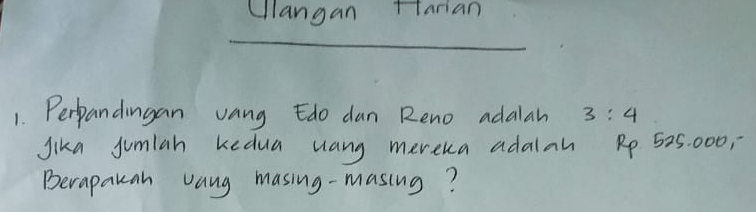 Ulangan Harian
1. Perbandingan uang Edo dan Reno adalah 3 : 4
Jika jumlah kedua uang mereka adalah Rp. 525.000,-
Berapakah uang masing-masing ?